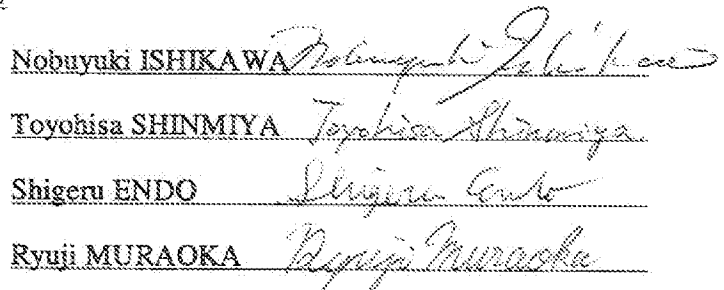 Nobuyuki ISHIKAWA Nobuyuki Ishikawa
Toyohisa SHINMIYA Toyohisa Shinmiya
Shigeru ENDO Shigeru Endo
Ryuji MURAOKA Ryuji Muraoka